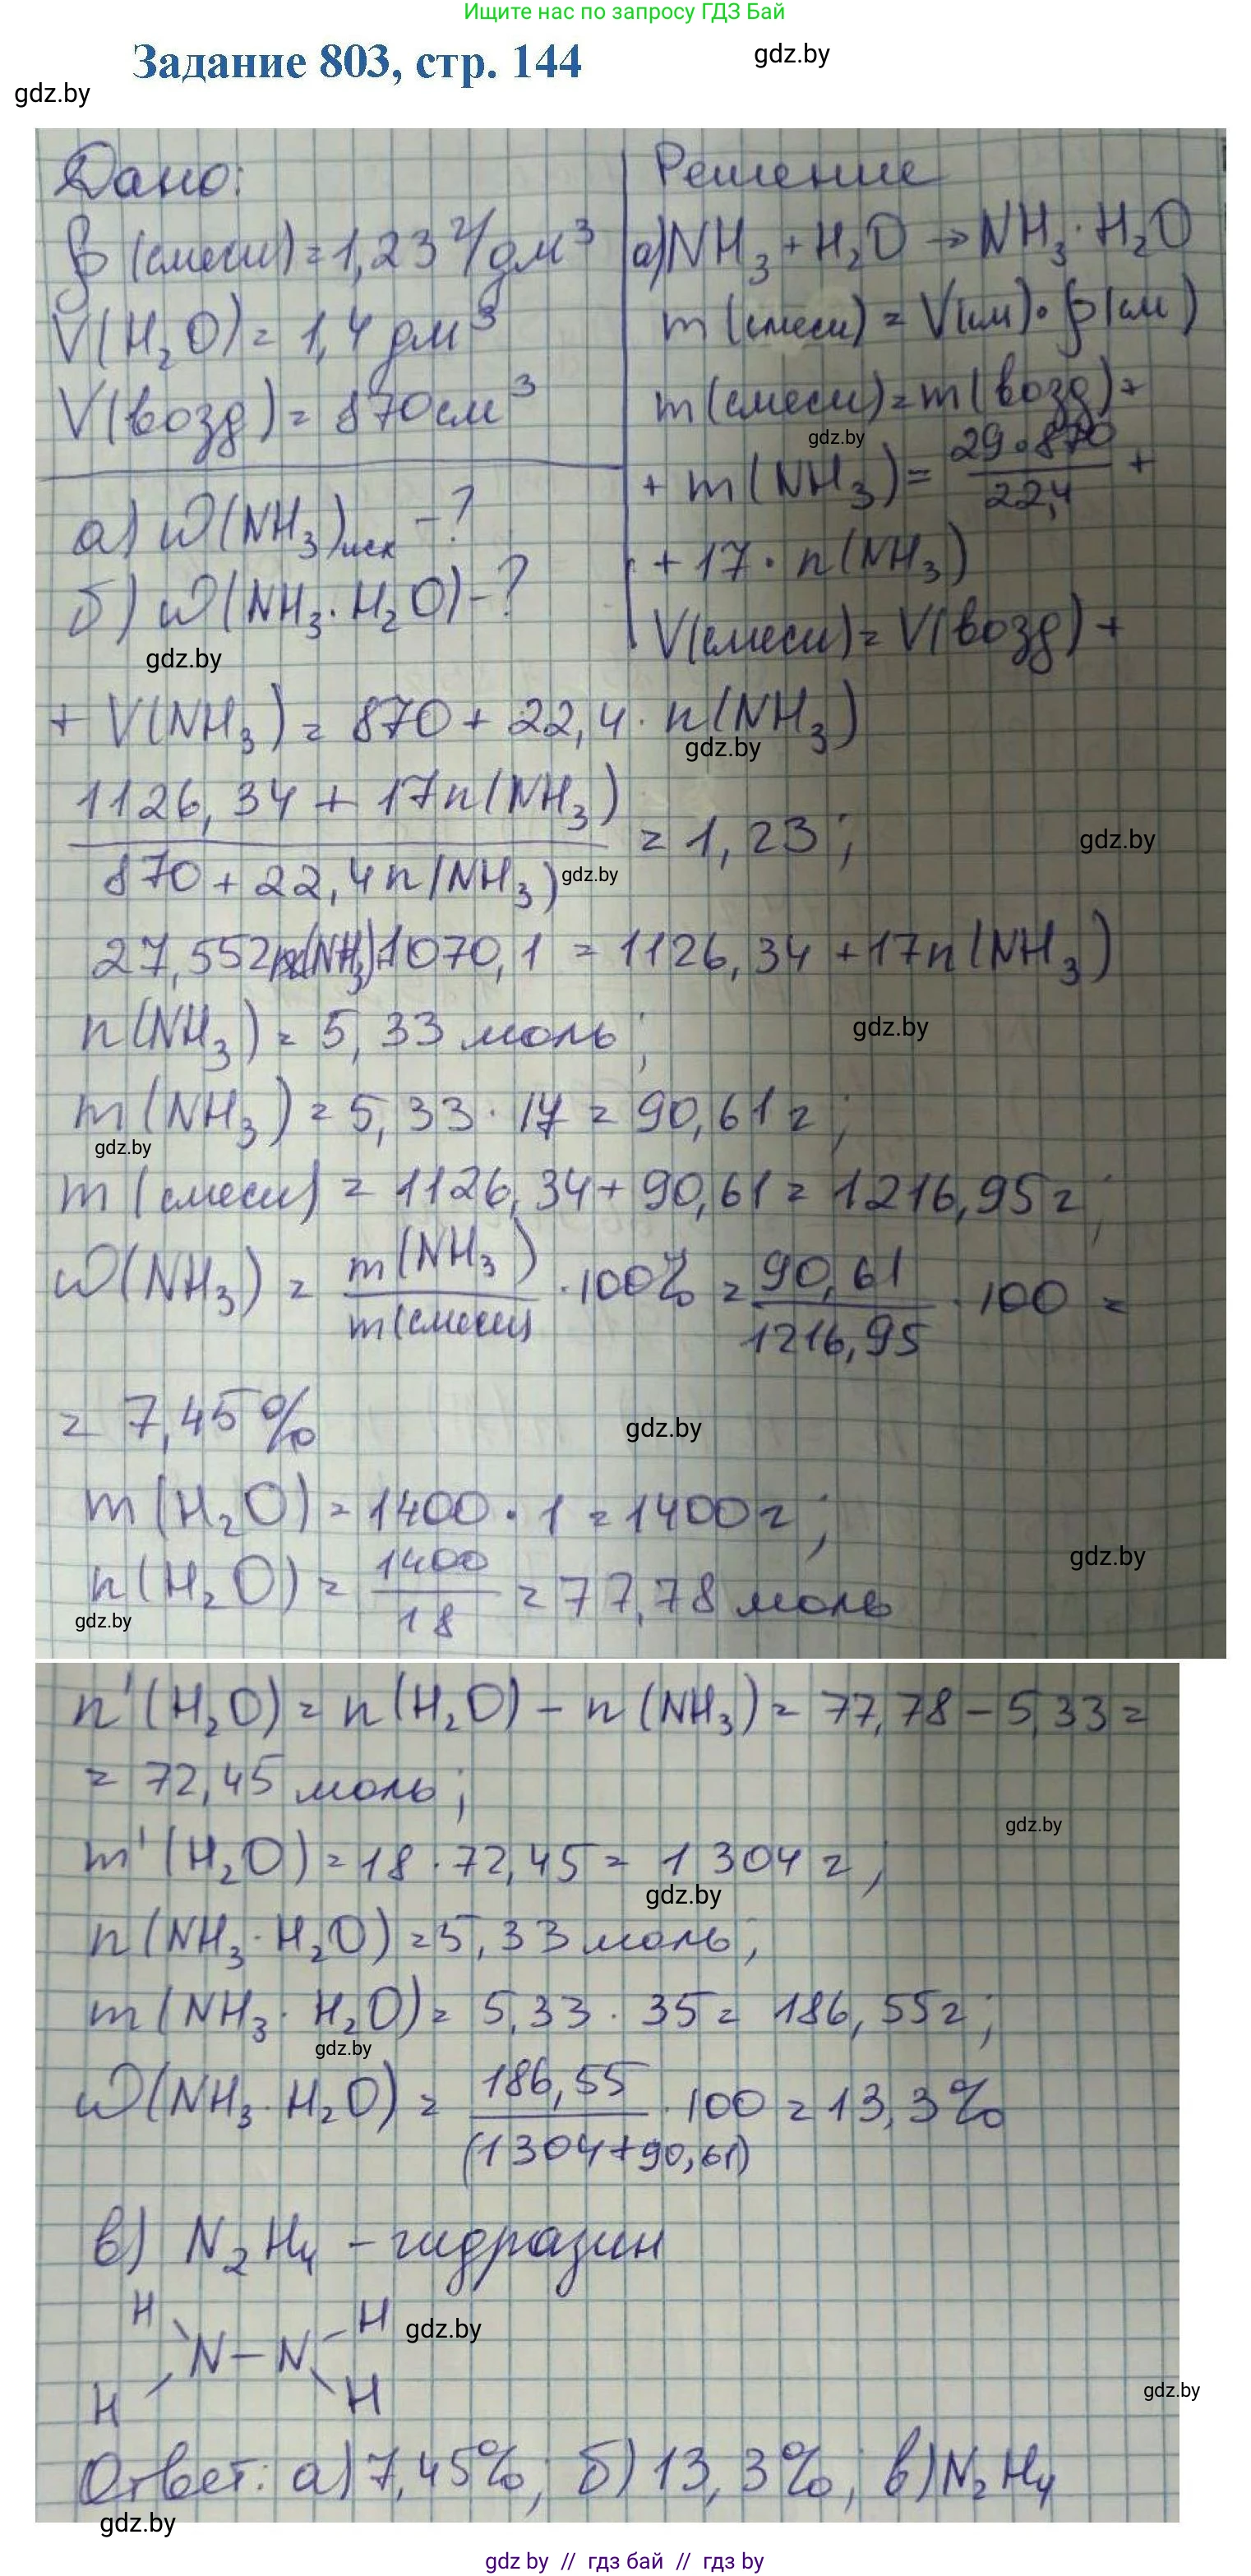 Ищите нас по запросу ГДЗ Бай
Задание 803, стр. 144
gdz.by
gdz.by
Дано:
ρ(смеси)=1,23 г/дм³
V(H₂O)=1,4 дм³
V(возд)=870 см³
а) ω(NH₃)исх -?
б) ω(NH₃·H₂O)-?
gdz.by
Решение
а) NH₃+H₂O → NH₃·H₂O
m(смеси)=V(см)·ρ(см)
m(смеси)=m(возд)+
gdz.by
+ m(NH₃)= 29·870/22,4 +
+17·n(NH₃)
V(смеси)=V(возд)+
+ V(NH₃)=870+22,4·n(NH₃)
gdz.by
1126,34+17n(NH₃)/870+22,4n(NH₃) =1,23;
gdz.by
gdz.by
27,552n(NH₃)+1070,1=1126,34+17n(NH₃)
n(NH₃)=5,33 моль;
gdz.by
m(NH₃)=5,33·17=90,61г;
gdz.by
m(смеси)=1126,34+90,61=1216,95г;
ω(NH₃)= m(NH₃)/m(смеси) ·100%= 90,61/1216,95 ·100=
=7,45%
gdz.by
m(H₂O)=1400·1=1400г;
gdz.by
n(H₂O)= 1400/18 =77,78 моль
gdz.by
n'(H₂O)=n(H₂O)-n(NH₃)=77,78-5,33=
=72,45 моль;
gdz.by
m'(H₂O)=18·72,45=1304г;
gdz.by
n(NH₃·H₂O)=5,33 моль;
m(NH₃·H₂O)=5,33·35=186,55г;
gdz.by
ω(NH₃·H₂O)= 186,55/(1304+90,61) ·100=13,3%
в) N₂H₄ - гидразин
H H
gdz.by
N-N
H H
gdz.by
Ответ: а)7,45%; б)13,3%; в)N₂H₄
gdz.by
gdz by // гдз бай // гдз by